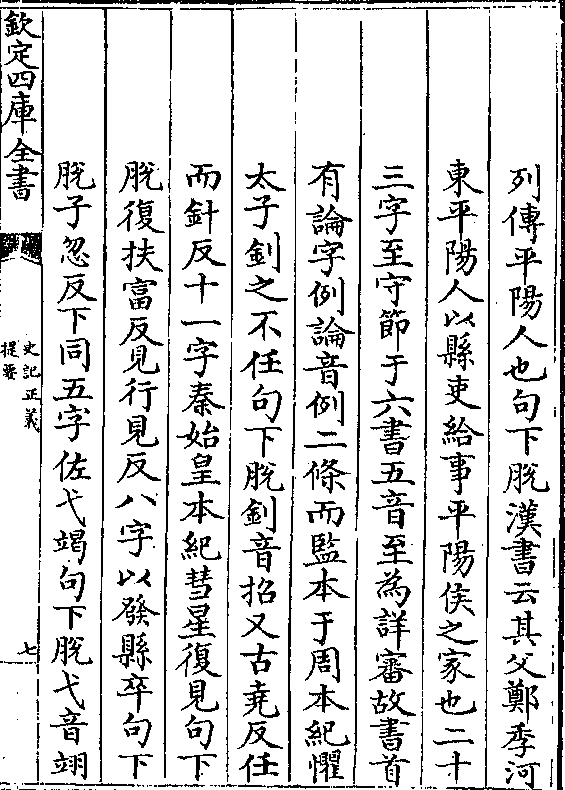 列傳平陽人也句下脱漢書云其父鄭季河
東平陽人以縣吏給事平陽侯之家也二十
三字至守節于六書五音至為詳審故書首
有論字例論音例二條而監本于周本紀懼
太子釗之不任句下脱釗音招又古堯反任
而針反十一字秦始皇本紀彗星復見句下
脱復扶富反見行見反八字以發縣卒句下
脱子忽反下同五字佐弋竭句下脱弋音翊
欽定四庫全書
史記正義
提要
七